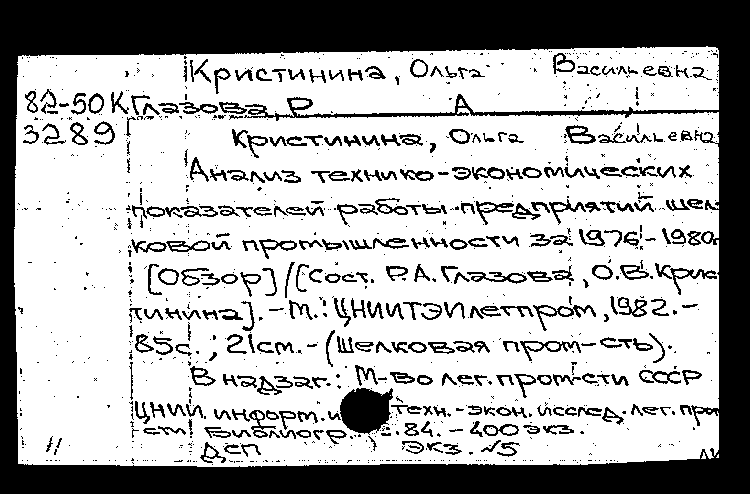 Кристинина, Ольга Васильевна
82-50К Глазова, Р А
3289 Кристинина, Ольга Васильевна
Анализ технико-экономических
показателей работы предприятий шел-
ковой промышленности за 1976-1980г
[Обзор]/[Сост. Р.А.Глазова, О.В.Крис-
тинина]. - М.: ЦНИИТЭИлегпром, 1982. -
85с.; 21см. - (Шелковая пром-сть).
В надзаг.: М-во лег. пром-сти СССР
ЦНИИ информ. и техн.-экон. исслед. лег. пром
сти Библиогр. 84. - 400экз.
11 ДСП экз. №5